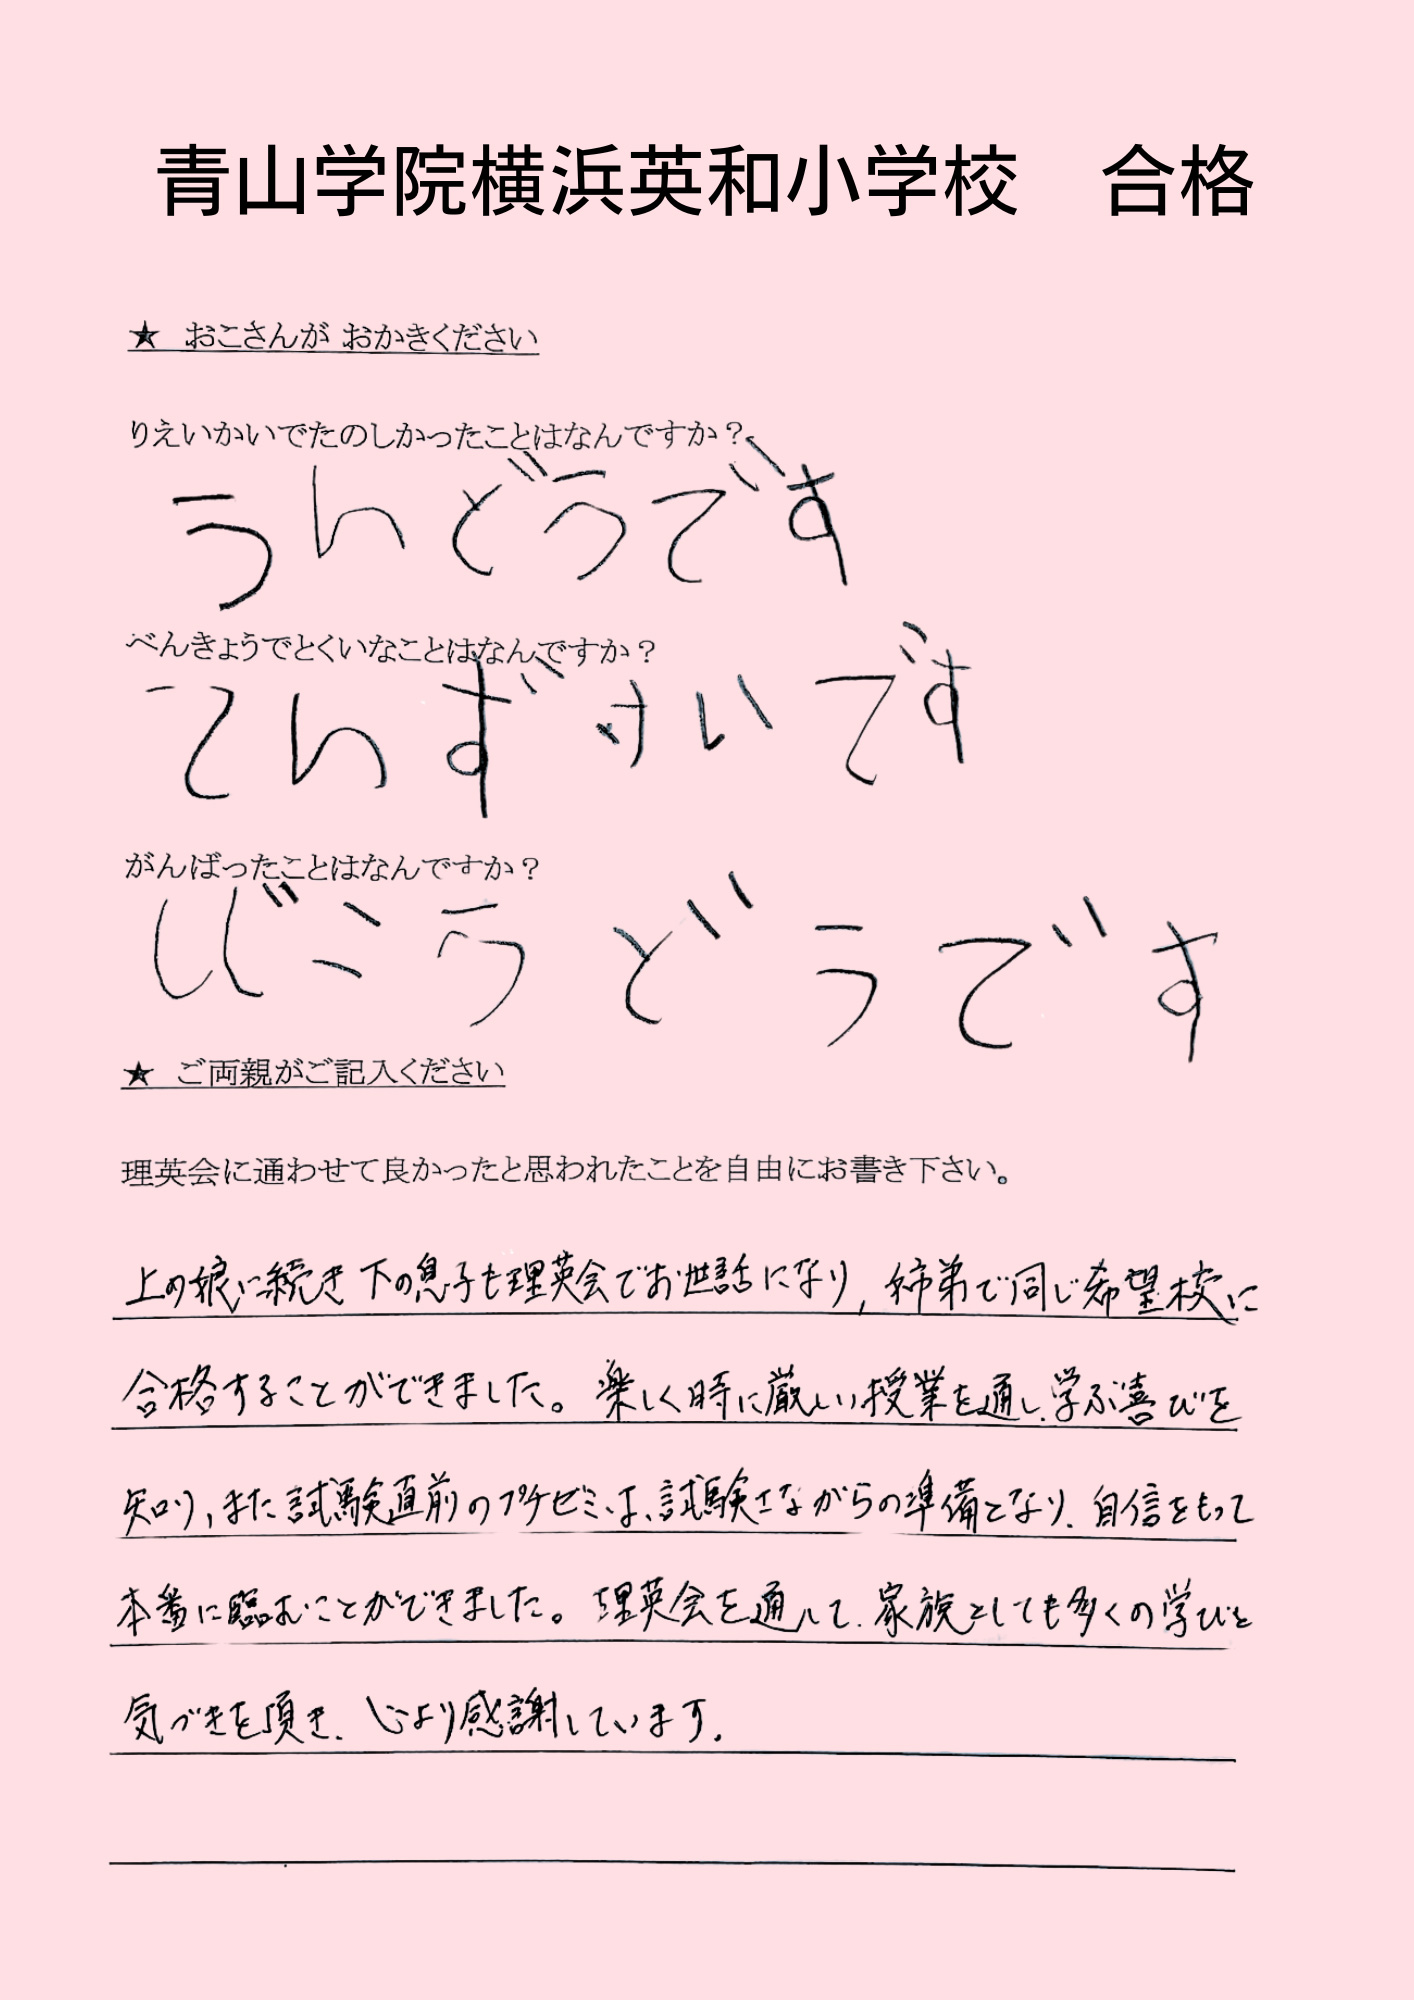 青山学院横浜英和小学校　合格
★　おこさんが おかきください
りえいかいでたのしかったことはなんですか？
うんどうです
べんきょうでとくいなことはなんですか？
てんずけいです
がんばったことはなんですか？
じこうどうです
★　ご両親がご記入ください
理英会に通わせて良かったと思われたことを自由にお書き下さい。
上の娘に続き下の息子も理英会でお世話になり,姉弟で同じ希望校に
合格することができました。楽しく時に厳しい授業を通し、学ぶ喜びを
知り、また試験直前のプチゼミは、試験さながらの準備となり、自信をもって
本番に臨むことができました。理英会を通して、家族としても多くの学びと
気づきを頂き、心より感謝しています。